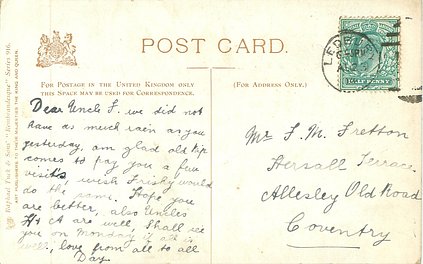 POST CARD.
FOR POSTAGE IN THE UNITED KINGDOM ONLY
THIS SPACE MAY BE USED FOR CORRESPONDENCE.
(FOR ADDRESS ONLY.)
Dear Uncle F. we did not
have as much rain as you
yesterday, am glad old Kip
comes to pay you a few
visits wish Frisky would
do the same. Hope you
are better, also Uncles
H & A are well, Shall see
you on Monday, if all is
well, love from all to all
Day
Mr F. M. Fretton
Hersall Terrace
Allesley Old Road
Coventry
Raphael Tuck & Sons'
Series 916.
ART PUBLISHERS TO THEIR MAJESTIES THE KING AND QUEEN.
HALFPENNY